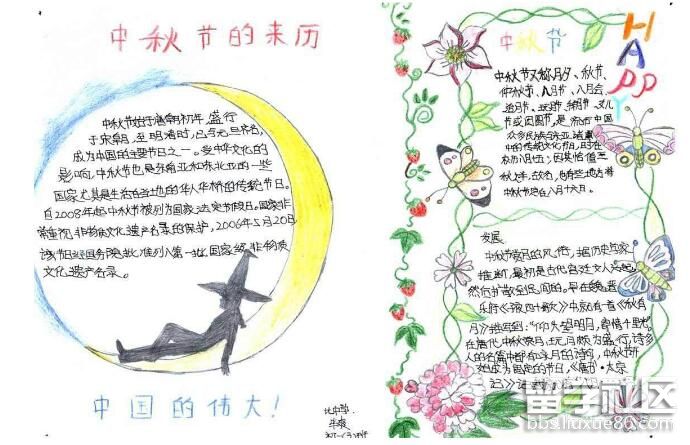 中秋节的来历
中秋节始于唐朝初年，盛行
于宋朝，至明清时，已与元旦齐名，
成为中国的主要节日之一。受中华文化的
影响，中秋节也是东南亚和东北亚的一些
国家尤其是生活在当地的华人华侨的传统节日。
自2008年起中秋节被列为国家法定节假日。国家非
常重视非物质文化遗产名录的保护，2006年5月20日，
该节日经国务院批准列入第一批国家级非物质
文化遗产名录。
中国的伟大！
中秋节
HAPPY
中秋节又称月夕、秋节、
仲秋节、八月节、八月会、
追月节、玩月节、拜月节、女儿
节或团圆节，是流行中国
众多民族与东亚诸国
中的传统文化节日，时在
农历八月十五；因其恰值三
秋之半，故名，也有些地方将
中秋节定在八月十六日。
发展
中秋节赏月的风俗，据历史学家
推断，最初是古代宫廷文人兴起，
然后扩散至民间的。早在魏晋
乐府《子夜四十歌》中就有一首《秋有
月》描写到：“仰头望明月，寄情千里光。”
在唐代，中秋赏月、玩月颇为盛行，许多
人的名篇中都有咏月的诗句，中秋节开
始成为固定的节日，《唐书·太宗
记》
留学社区
bbs.liuxue86.com